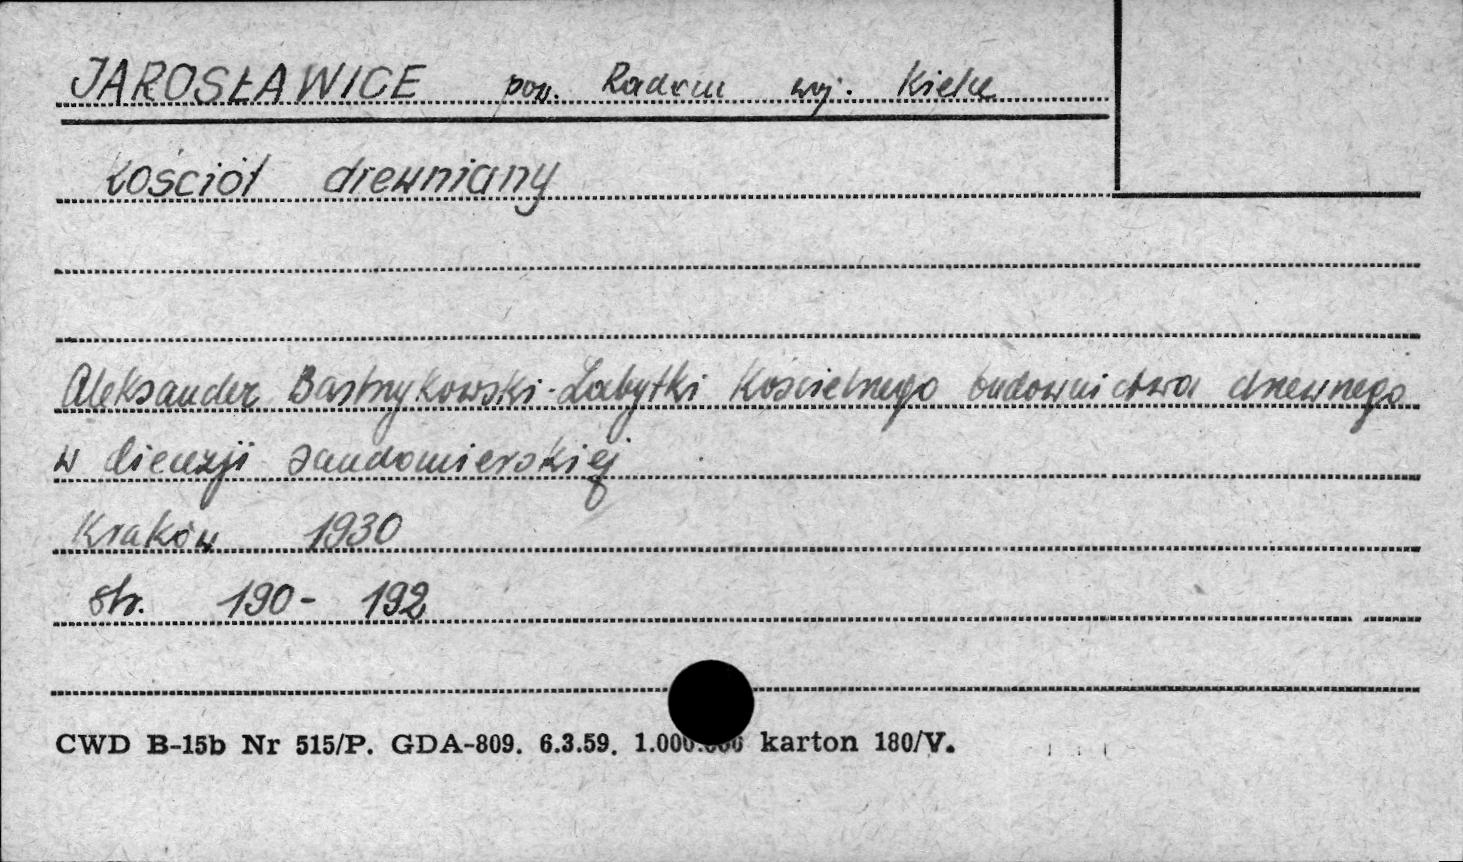 JAROSŁAWICE pow. Radom woj. Kielce
kościół drewniany
Aleksander Bastrzykowski - Zabytki Kościelnego budownictwa drzewnego
w diecezji sandomierskiej
Kraków 1930
str. 190 - 192
CWD B-15b Nr 515/P. GDA-809. 6.3.59. 1.000.000 karton 180/V.